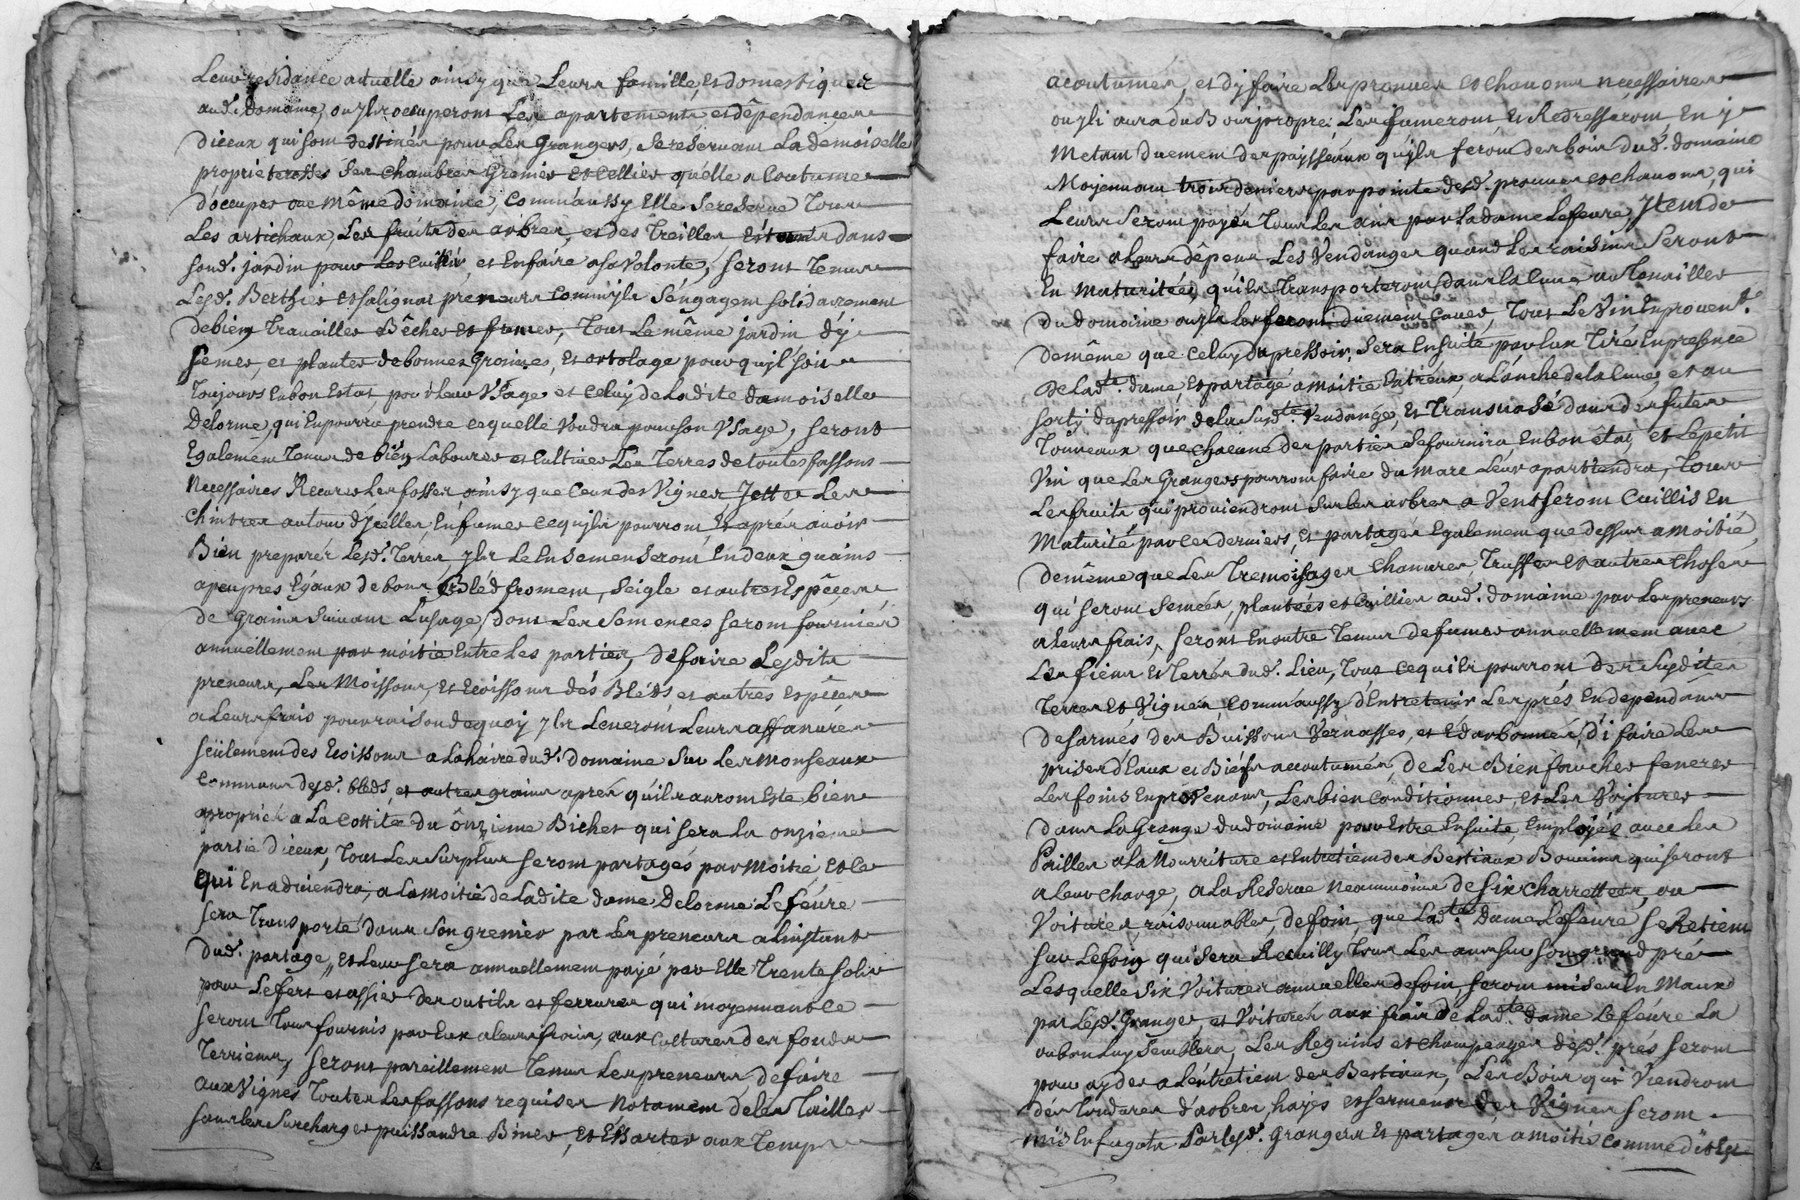 Leur residance actuelle ainsy que Leurs famille, et domestiques
aud. Domaine, ou ylz ocuperont Les apartements et dêpendances
diceux qui sont destinés pour Les Grangers, Se reservant La demoiselle
proprieteresse Ses chambres Grenier et Cellier qu'elle a Coutume
d'ocuper au Même domaine, Comm'aussy Elle Se reserve Tous
Les artichaux, Les fruits des arbres, et des Treilles Estants dans
sond. jardin pour Les Cuillir et En faire a Sa Volonté, Seront Tenus
Lesd. Berthier et Salignat preneurs Comm'yls S'engagent Solidairement
de bien Travailler Bêcher et fumer, Tout Le même jardin d'y
Semer, et planter de bonnes Graines, Et ortolage pour qu'il soit
Toujours En bon Estat, pour Leur Usage et Celuy de Ladite damoiselle
Delorme, qui En pourra prendre ce quelle Voudra pour son Usage, Seront
Egalement Tenus de bien Labourer et Cultiver Les Terres de toutes fassons
Necessaires Recurer Les fosses ainsy que Ceux des Vignes Jetter Les
Chintres autour d'ycelles, Enfumer ce qu'yls pourront Et aprés avoir
Bien preparér Lesd. Terres, yls Le Ensemenseront En deux guains
apeupres Egaux de bons Bléd froment, Seigle et autres Espêces
de Grains Suivant Lusage, dont Les Semences Seront fournies
annuellement par moitié Entre Les parties, de faire Lesdits
preneurs, Les Moissons, et Ecossons dés Bléds et autres Espêces
a Leurs frais pour raison de quoy yls Leveront Leurs affanures
Seulement des Ecossons a Lahaire dud. Domaine Sur Les Monseaux
Communs desd. bleds et autres grains aprés qu'ils auront Este bien
aproprié a La Cottitée du ônzieme Bichet qui sera La onzieme
partie d'iceux, Tout Les Surplus Seront partagés par Moitié, et Ce
qui En adviendra, a La moitié de Ladite dame Delorme Lefévre
Sera Transporté dans Son grenier par Les preneurs a Linstant
dud. partage, et Leur Sera annuellement payé par Elle Trente Solz
pour Le fert et assier des outils et ferrures qui moyennant Ce
Seront Tous fournis par Eux a Leurs frais, aux Cultures des fonds
Terriens, Seront pareillement Tenus Les preneurs de faire
aux Vignes Toutes Les fassons requises Notament de les Tailler
Sans Les Surcharger puissandre Biner, et Essarter aux Temps
acoutumés, et d'y faire Les prouves et chavons necessaires
ou yl i aura du Bois propre, Les fumeront, Et Redresseront En y
Metant duement des paysseaux qu'yls feront des bois dud. domaine
Moyennant trois deniers par pointe desd. prouves et chavons, qui
Leurs Seront payés Tous Les ans par La dame Lefevre, Item de
faire a Leurs dêpens Les Vendanges quand Les raisins Seront
En Maturitée, qu'ils Transporteront dans La Cuve au Tenailler
du domaine ou yls Les feront duement Cuver, Tout Le Vin En provent.
de même que Celuy du pressoir, Sera Ensuite par Eux Tiré En presence
De Lad.te dame Et partagé a moitié Entreux, a L'anche de la Cuve, et au
Sorty du pressoir de la Susd.te Vendange, Et Transvasé dans des futes
Tonneaux que chacune des parties Se fournira, En bon état, et Le petit
Vin que Les Grangers pourront faire du Marc Leur apartiendra, Tous
Les fruits qui proviendront Sur Les arbres a Vent Seront Cuillis En
Maturité par ces derniers, et partagés Egalement que dessus a moitié,
de même que Les Tremoisages Chanvres Truffes et autres Choses
qui Seront Semées, plantées et Cuillies aud. Domaine par Les preneurs
a Leurs frais, Seront En outre Tenus de fumer annuellement avec
Les fiens Et Terrés dud. Lieu, Tous ce qu'ils pourront des Susdites
Terres et Vignes, Comm'aussy d'Entretenir Les prés En dependants
desarmés des Buissons Vernasses, et Edarbonnés, d'i faire Les
prises d'Eaux et Biéfs accoutumés, de Les Bien faucher fenerer
Les foins En provenant, Les bien Conditionner, et Les Voiturer
dans La Grange du domaine pour Estre Ensuite Employés avec Les
Pailles a La Nourriture et Entretien des Bestiaux Bouvins qui seront
a Leur Charge, a La Reserve Neanmoins de Six Charrettées, ou
Voitures, raisonnables, de foin, que Lad.te Dame Lefevre Se Retient
Sur Le foin qui Sera Recuilly Tous Les ans Sur Son grand pré
Lesquelles Six Voitures annuelles de foin Seront mises En Maux
par Lesd. Granger, et Voiturés aux frais de Lad.te dame Lefévre La
ou bon Luy Semblera, Les Reguins et Champeages desd. prés Seront
pour ayder a L'entretien des Bestiaux, Les Bois qui Viendront
des Tondures d'arbres, hayes et Serments des Vignes Seront
mis En fagots Par Lesd. Grangers Et partagés a moitié Comme dit Est